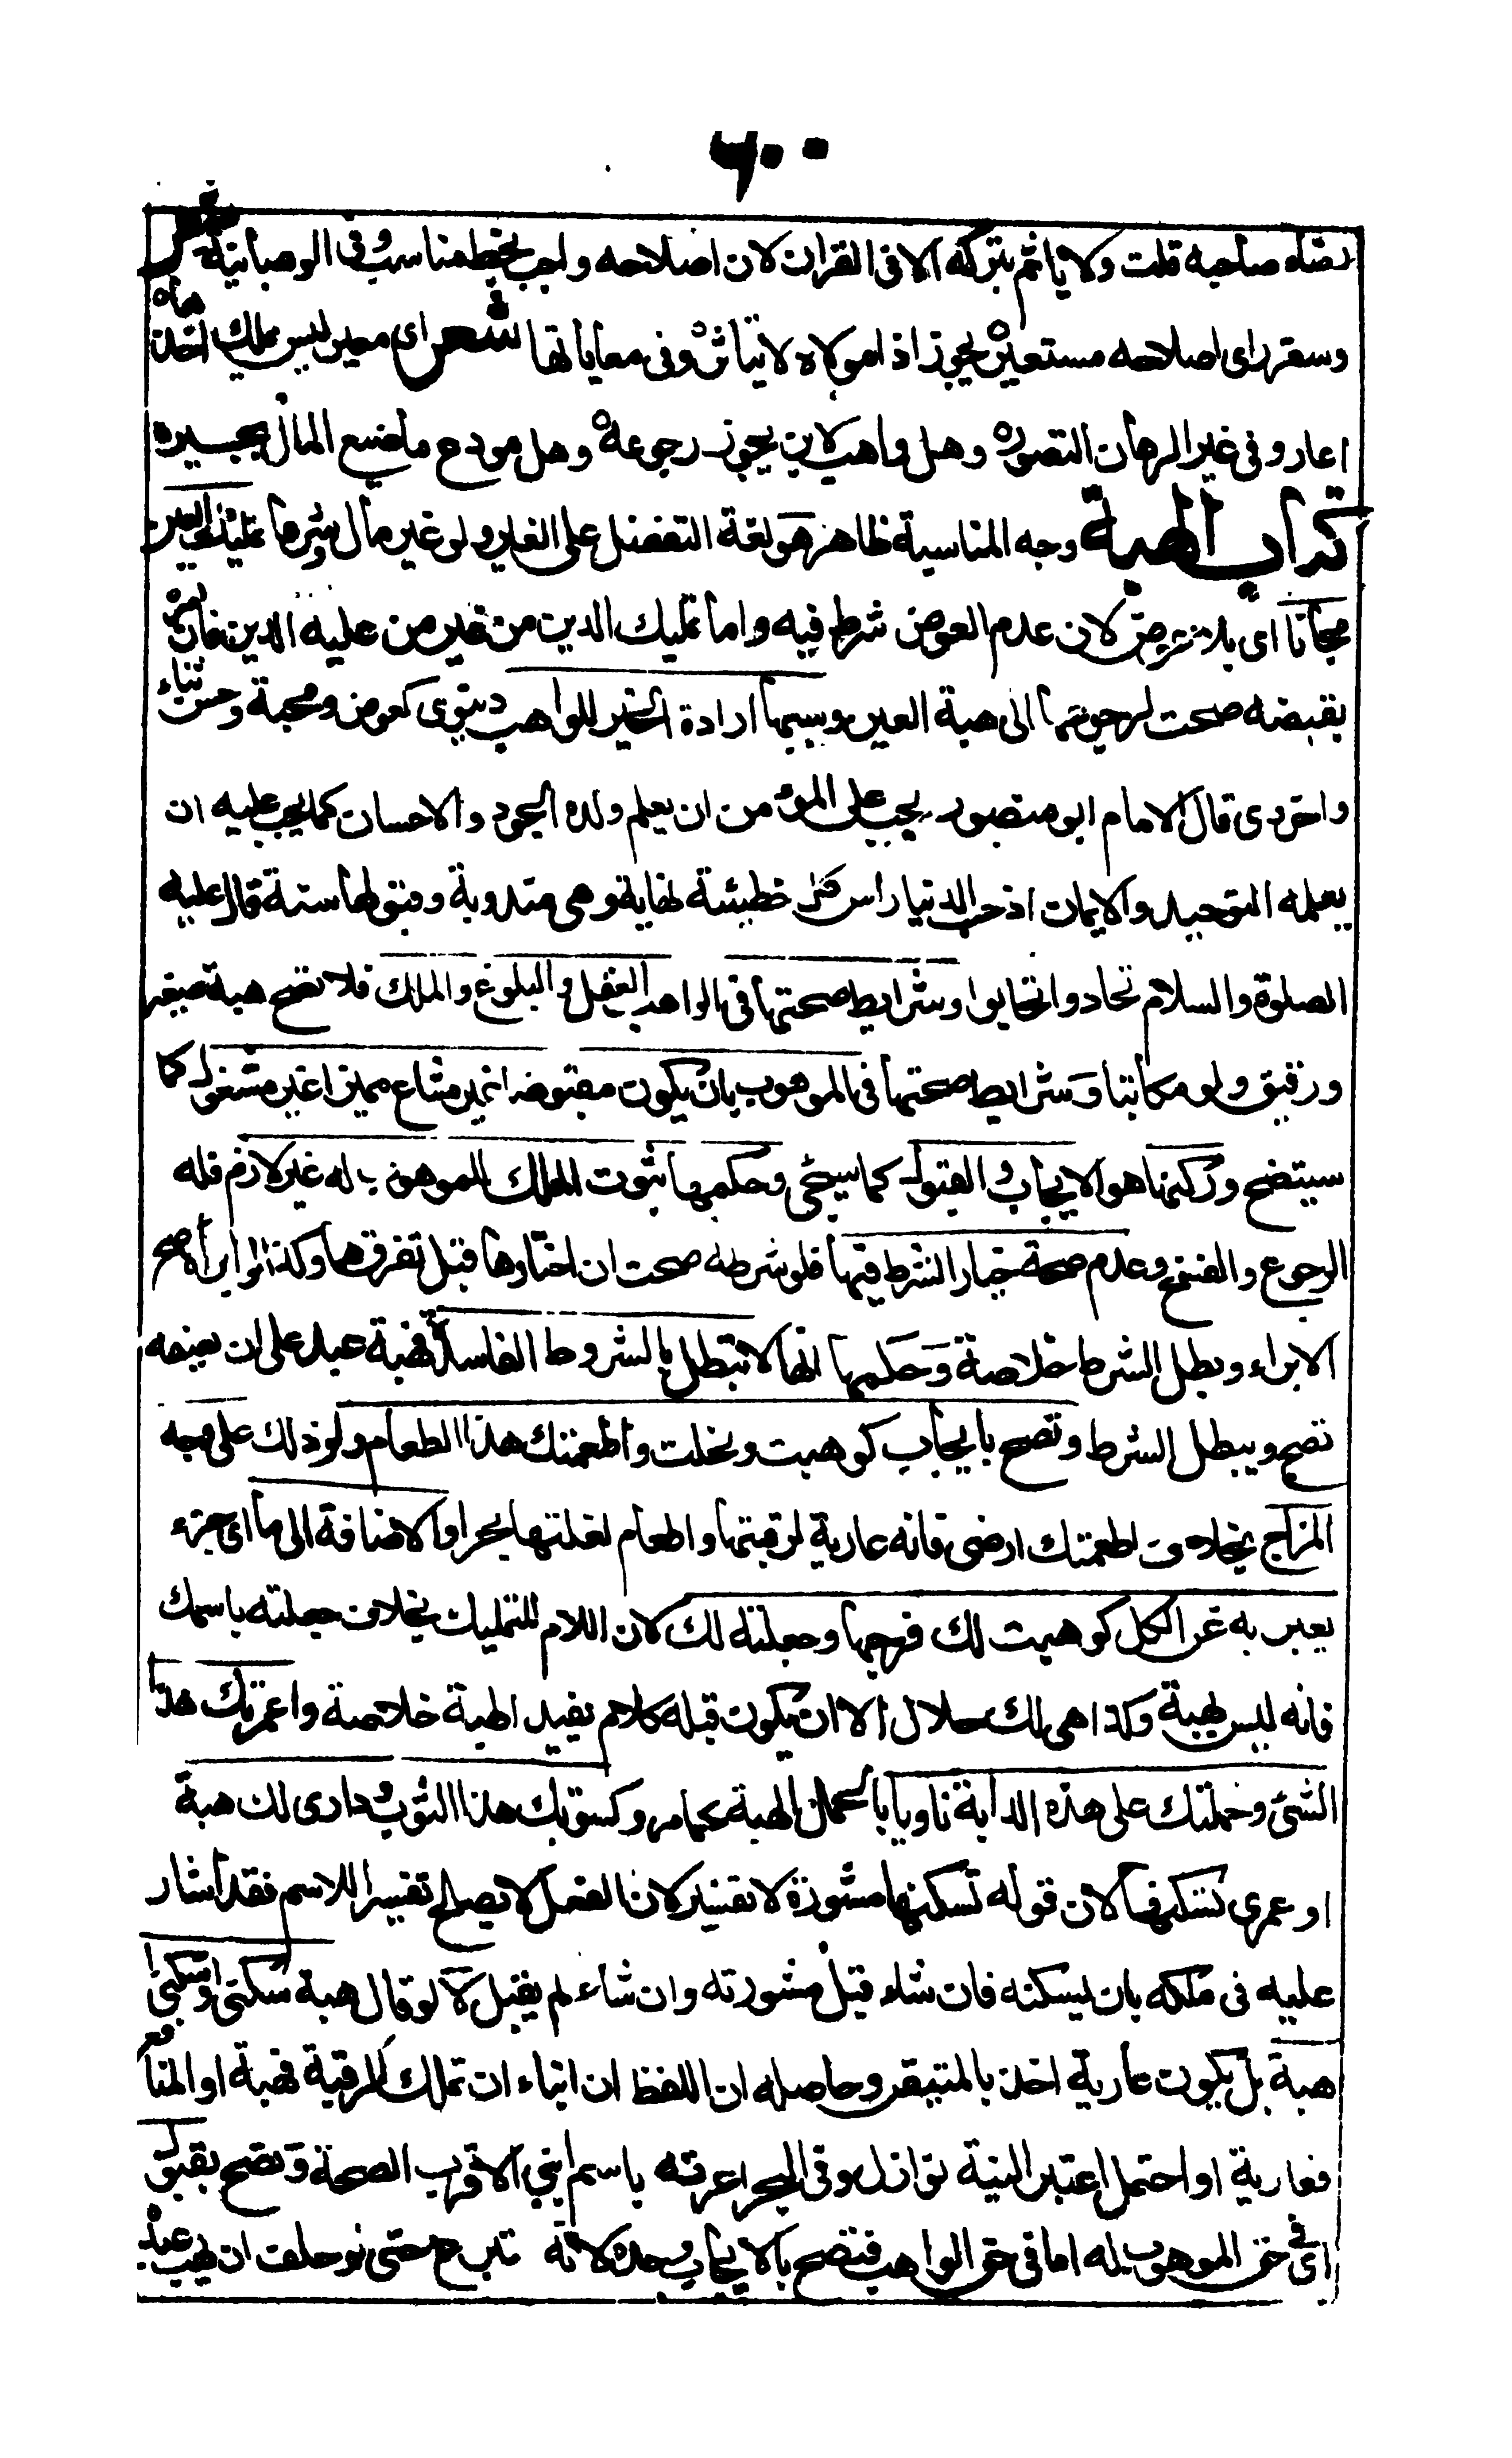 ٦٠٠
رضاء صاحبه قلت ولا ياثم بتركه الا فى القران لان اصلاحه واجب بخط مناسب وفى الوهبانية شعر
وسفر راى اصلاحه مستعيره يجوز اذا مولاه لا يتاثر وفى معاياتها شعر اى معير ليس يملك اخذ ماه
اعار وفى غير الرهان التصوره وهل واهب لابن يجوز رجوعه وهل مودع ما ضيع المال يجسيره
كتاب الهبة وجه المناسبة ظاهر هو لغة التفضل على الغير ولو غير مال وشرعا تمليك العين
مجانا اى بلا عوض لان عدم العوض شرط فيه واما تمليك الدين من غير من عليه الدين فان امره
بقبضه صحت لرجوعها الى هبة العين وسببها ارادة الخير للواهب دنيوى كعوض ومحبة وحسن ثناء
واخروى قال الامام ابو منصور يجب على المؤمن ان يعلم ولده الجود والاحسان كما يجب عليه ان
يعلمه التوحيد والايمان اذ حب الدنيا راس كل خطيئة نهاية وهى مندوبة وقبولها سنة قال عليه
الصلوة والسلام تهادوا تحابوا وشرايط صحتها فى الواهب العقل والبلوغ والملك فلا تصح هبة صغير
ورقيق ولو مكاتبا وشرايط صحتها فى الموهوب بان يكون مقبوضا غير مشاع مميزا غير مشغول كما
سيتضح وركنها هو الايجاب والقبول كما سيجئ وحكمها ثبوت الملك للموهوب له غير لازم فله
الرجوع والفسخ وعدم صحة خيار الشرط فيها فلو شرطه صحت ان اختارها قبل تفرقهما وكذا لو ابراه صح
الابراء وبطل الشرط خلاصة وحكمها انها لا تبطل بالشروط الفاسدة فهبة عبد على ان يعتقه
تصح ويبطل الشرط وتصح بايجاب كوهبت ونحلت واطعمتك هذا الطعام ولو ذلك على وجه
المزاح بخلاف اطعمتك ارضى فانه عارية لرقبتها واطعام لغلتها بحر او الاضافة الى ما اى جزء
يعبر به عن الكل كوهبت لك فرجها وجعلته لك لان اللام للتمليك بخلاف جعلته باسمك
فانه ليس بهبة وكذا هى لك حلال الا ان يكون قبله كلام يفيد الهبة خلاصة واعمرتك هذا
الشئ وحملتك على هذه الدابة ناويا بالحملان الهبة كما مر وكسوتك هذا الثوب ودارى لك هبة
او عمرى تسكنها لان قوله تسكنها مشورة لا تفسير لان الفعل لا يصلح تفسيرا للاسم فقد اشار
عليه فى ملكه بان يسكنه فان شاء قبل مشورته وان شاء لم يقبل لا لو قال هبة سكنى او سكنى
هبة بل يكون عارية اخذ بالمتيقن وحاصله ان اللفظ ان انباء ان تملك الرقبة فهبة او المنافع
فعارية او احتمل اعتبر النية نوازل وفى البحر اغرسه باسم ابنى الاقرب الصحة وتصح بقبول
اى فى حق الموهوب له اما فى حق الواهب فتصح بالايجاب وحده لانه تبرع حتى لو حلف ان يهب عبد